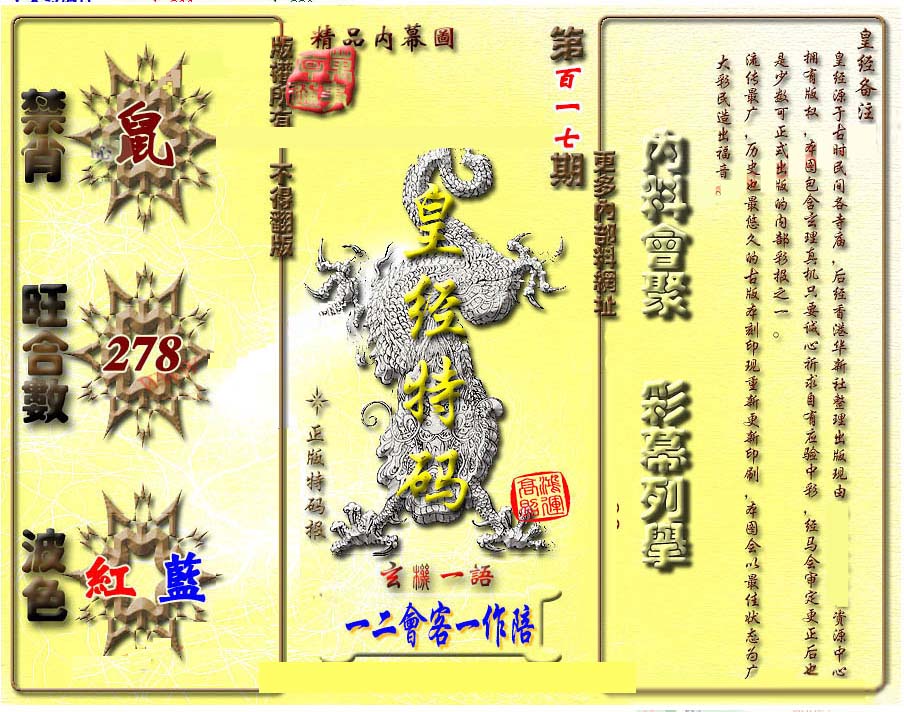 精品內幕圖
第百一七期
版權所有
不得翻版
更多內部料網址
禁肖
鼠
旺合數
278
波色
紅 藍
皇经特码
正版特码报
鴻運高照
玄機一語
一二會客一作陪
內料會聚
彩幕列舉
皇经备注
皇经源于古时民间各寺庙，后经香港华新社整理出版现由 资源中心
拥有版权，本图包含玄理真机只要诚心祈求自有应验中彩，经马会审定更正后也
是少数可正式出版的内部彩报之一。
流传最广，历史也最悠久的古版本刻印现重新更新印刷，本图会以最佳状态为广
大彩民造出福音